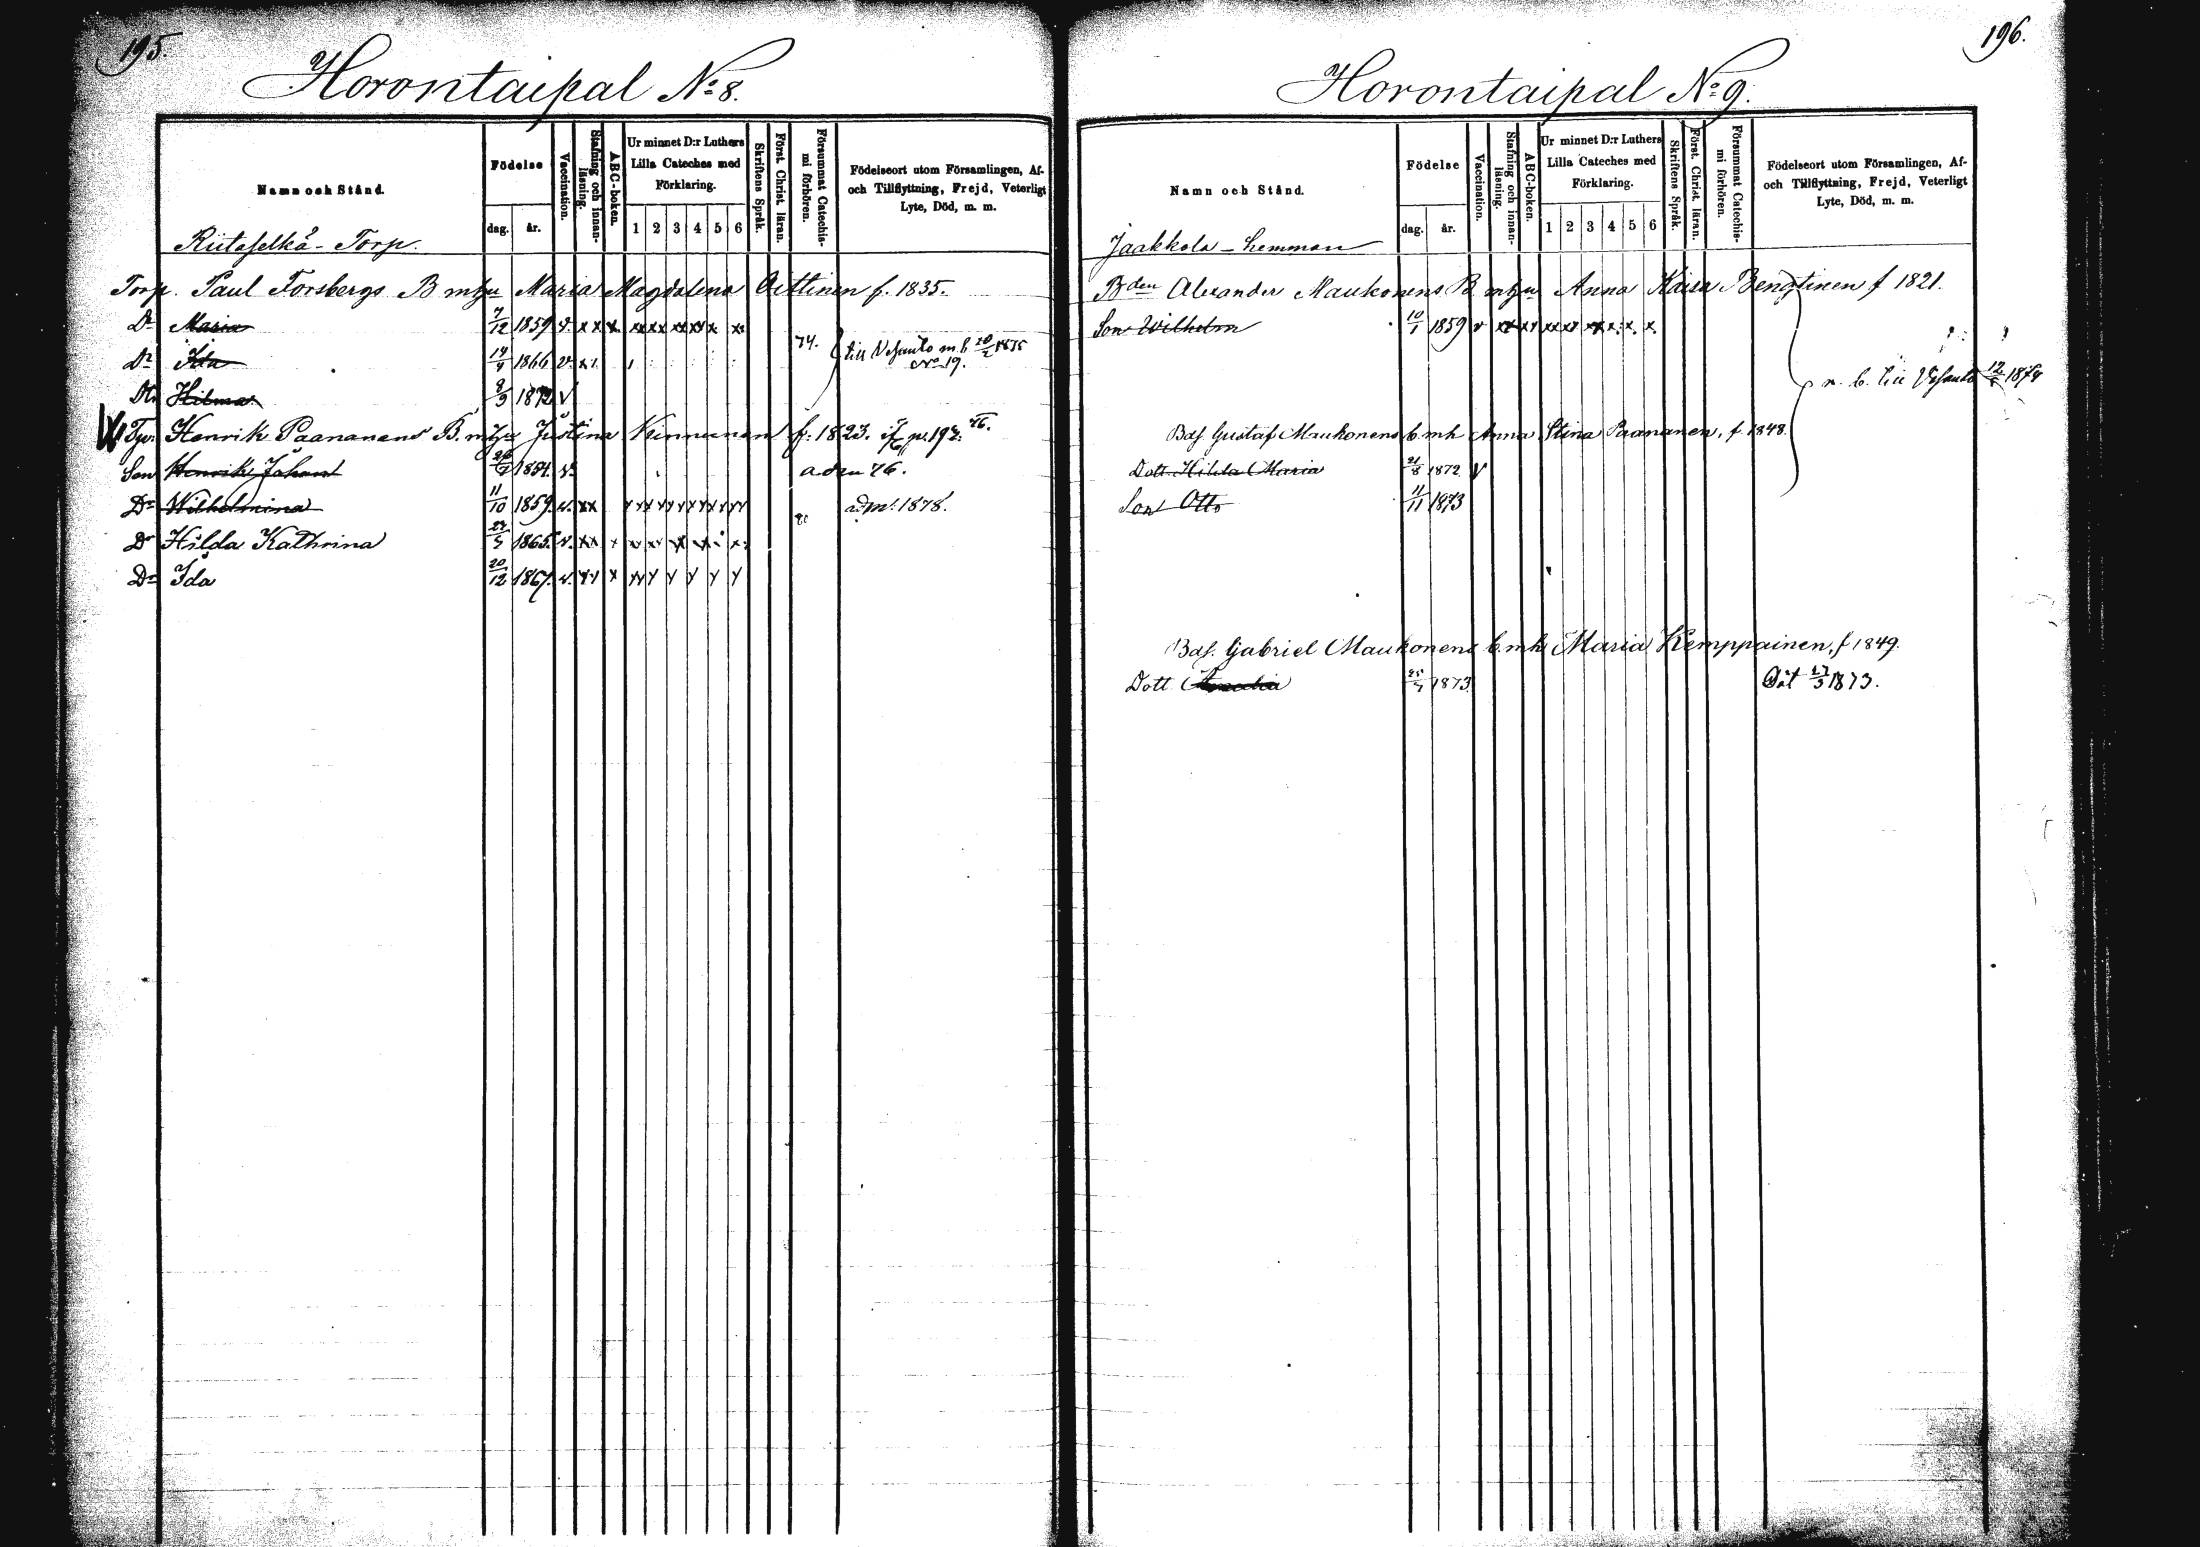 195.
Horontaipal No 8.
Namn och Stånd.
Födelse
dag.
år.
Vaccination.
Stafning och innan-
läsning.
ABC-boken.
Ur minnet D:r Luthers
Lilla Cateches med
Förklaring.
1 2 3 4 5 6
Skriftens Språk.
Först. Christ. läran.
Försummat Catechis-
mi förhören.
Födelseort utom Församlingen, Af-
och Tillflyttning, Frejd, Veterligt
Lyte, Död, m. m.
Torp.
Torp. Paul Forsbergs B mhu Maria Magdalena Oittinen f. 1835.
Dr Maria 7/12 1859 v. x x x xx xx xx xx x x
Dr Ida 1866 v. x
74.
till Vesanto m. b. 1875
No 19.
Hilma 8/9 1872 v
Henrik Paananens B. mhu Justina Kinnunen f. 1823. p. 192. 76.
Son Henrik Johan 1854 v. adm 76.
Dr Wilhelmina 11/10 1859 v. xx adm: 1878.
80
Dr Hilda Kathrina 1865 v. xx x
Dr Ida 20/12 1867 v. x y y y y y
196.
Horontaipal No 9.
Namn och Stånd.
Födelse
dag.
år.
Vaccination.
Stafning och innan-
läsning.
ABC-boken.
Ur minnet D:r Luthers
Lilla Cateches med
Förklaring.
1 2 3 4 5 6
Skriftens Språk.
Först. Christ. läran.
Försummat Catechis-
mi förhören.
Födelseort utom Församlingen, Af-
och Tillflyttning, Frejd, Veterligt
Lyte, Död, m. m.
Jaakkola - hemman
Bden Alexander Maukonens B mhu Anna Kaisa Bengtinen f 1821.
Son Wilhelm 10/1 1859 v
m. b. till Vesanto 1874
Bdf. Gustaf Maukonens b. mh Anna Stina Paananen, f 1848.
Dott. Hilda Maria 21/8 1872 v
Son Otto 11/11 1873
Bdf. Gabriel Maukonens b. mh Maria Kemppainen, f 1849.
Dott. 1873 Död 1873.